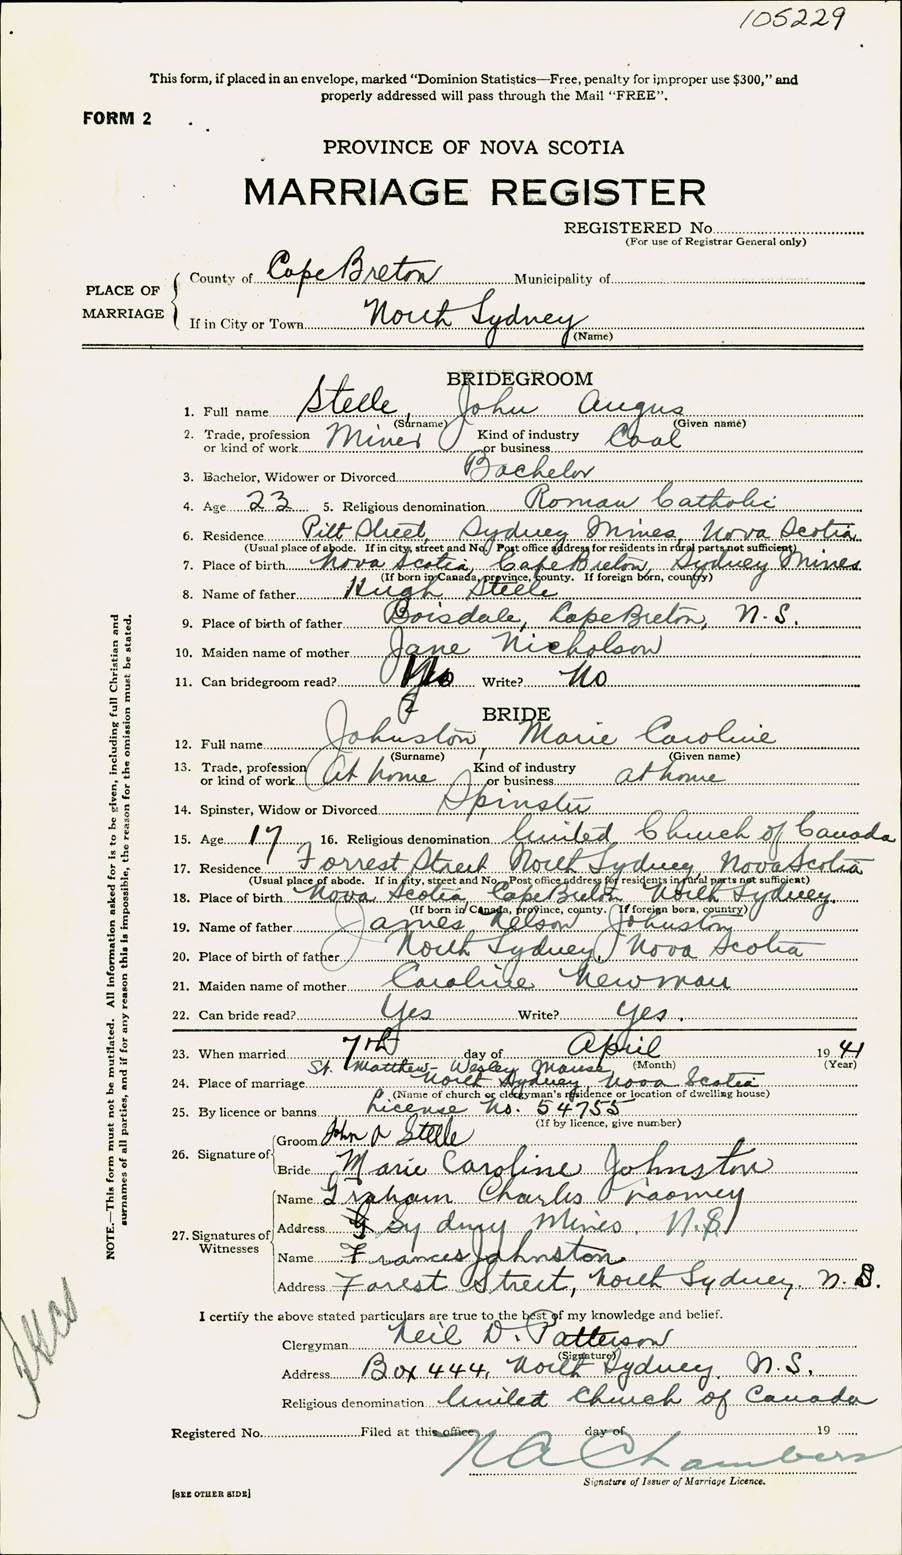 105229
This form, if placed in an envelope, marked "Dominion Statistics—Free, penalty for improper use $300," and
properly addressed will pass through the Mail "FREE".
FORM 2
PROVINCE OF NOVA SCOTIA
MARRIAGE REGISTER
REGISTERED No.
(For use of Registrar General only)
PLACE OF MARRIAGE
County of Cape Breton Municipality of
If in City or Town North Sydney
(Name)
BRIDEGROOM
1. Full name Steele, John Angus
(Surname) (Given name)
2. Trade, profession or kind of work Miner Kind of industry or business Coal
3. Bachelor, Widower or Divorced Bachelor
4. Age 23 5. Religious denomination Roman Catholic
6. Residence Pitt Street, Sydney Mines, Nova Scotia
(Usual place of abode. If in city, street and No. Post office address for residents in rural parts not sufficient)
7. Place of birth Nova Scotia, Cape Breton, Sydney Mines
(If born in Canada, province, county. If foreign born, country)
8. Name of father Hugh Steele
9. Place of birth of father Boisdale, Cape Breton, N.S.
10. Maiden name of mother Jane Nicholson
11. Can bridegroom read? Write? No
BRIDE
12. Full name Johnston, Marie Caroline
(Surname) (Given name)
13. Trade, profession or kind of work At home Kind of industry or business at home
14. Spinster, Widow or Divorced Spinster
15. Age 17 16. Religious denomination United Church of Canada
17. Residence Forrest Street North Sydney, Nova Scotia
(Usual place of abode. If in city, street and No. Post office address for residents in rural parts not sufficient)
18. Place of birth Nova Scotia, Cape Breton North Sydney.
(If born in Canada, province, county. If foreign born, country)
19. Name of father James Nelson Johnston
20. Place of birth of father North Sydney, Nova Scotia
21. Maiden name of mother Caroline Newman
22. Can bride read? Yes Write? Yes.
23. When married 7th day of April 1941
(Month) (Year)
St. Matthew-Wesley Manse,
24. Place of marriage North Sydney Nova Scotia
(Name of church or clergyman's residence or location of dwelling house)
25. By licence or banns License No. 54755
(If by licence, give number)
26. Signature of
Groom John A Steele
Bride Marie Caroline Johnston
27. Signatures of Witnesses
Name Graham Charles
Address Sydney Mines. N.S.
Name Frances Johnston
Address Forest Street, North Sydney. N.S.
I certify the above stated particulars are true to the best of my knowledge and belief.
Clergyman Neil D. Patterson
(Signature)
Address Box 444, North Sydney, N.S.
Religious denomination United Church of Canada
Registered No. Filed at this office day of 19
N A Chambers
Signature of Issuer of Marriage Licence.
[SEE OTHER SIDE]
NOTE.—This form must not be mutilated. All information asked for is to be given, including full Christian and
surnames of all parties, and if for any reason this is impossible, the reason for the omission must be stated.